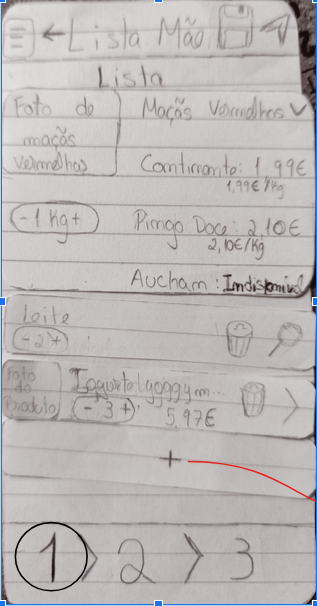 ← Lista Mão
Lista
Foto de
maçãs
vermelhas
Maçãs Vermelhas
Continente: 1,99€
1,99€/Kg
- 1 Kg +
Pingo Doce: 2,10€
2,10€/Kg
Aucham: Indisponível
Leite
- 2 +
Foto
do
Produto
Iogurte lyoggym...
- 3 +
5,97€
+
1 > 2 > 3